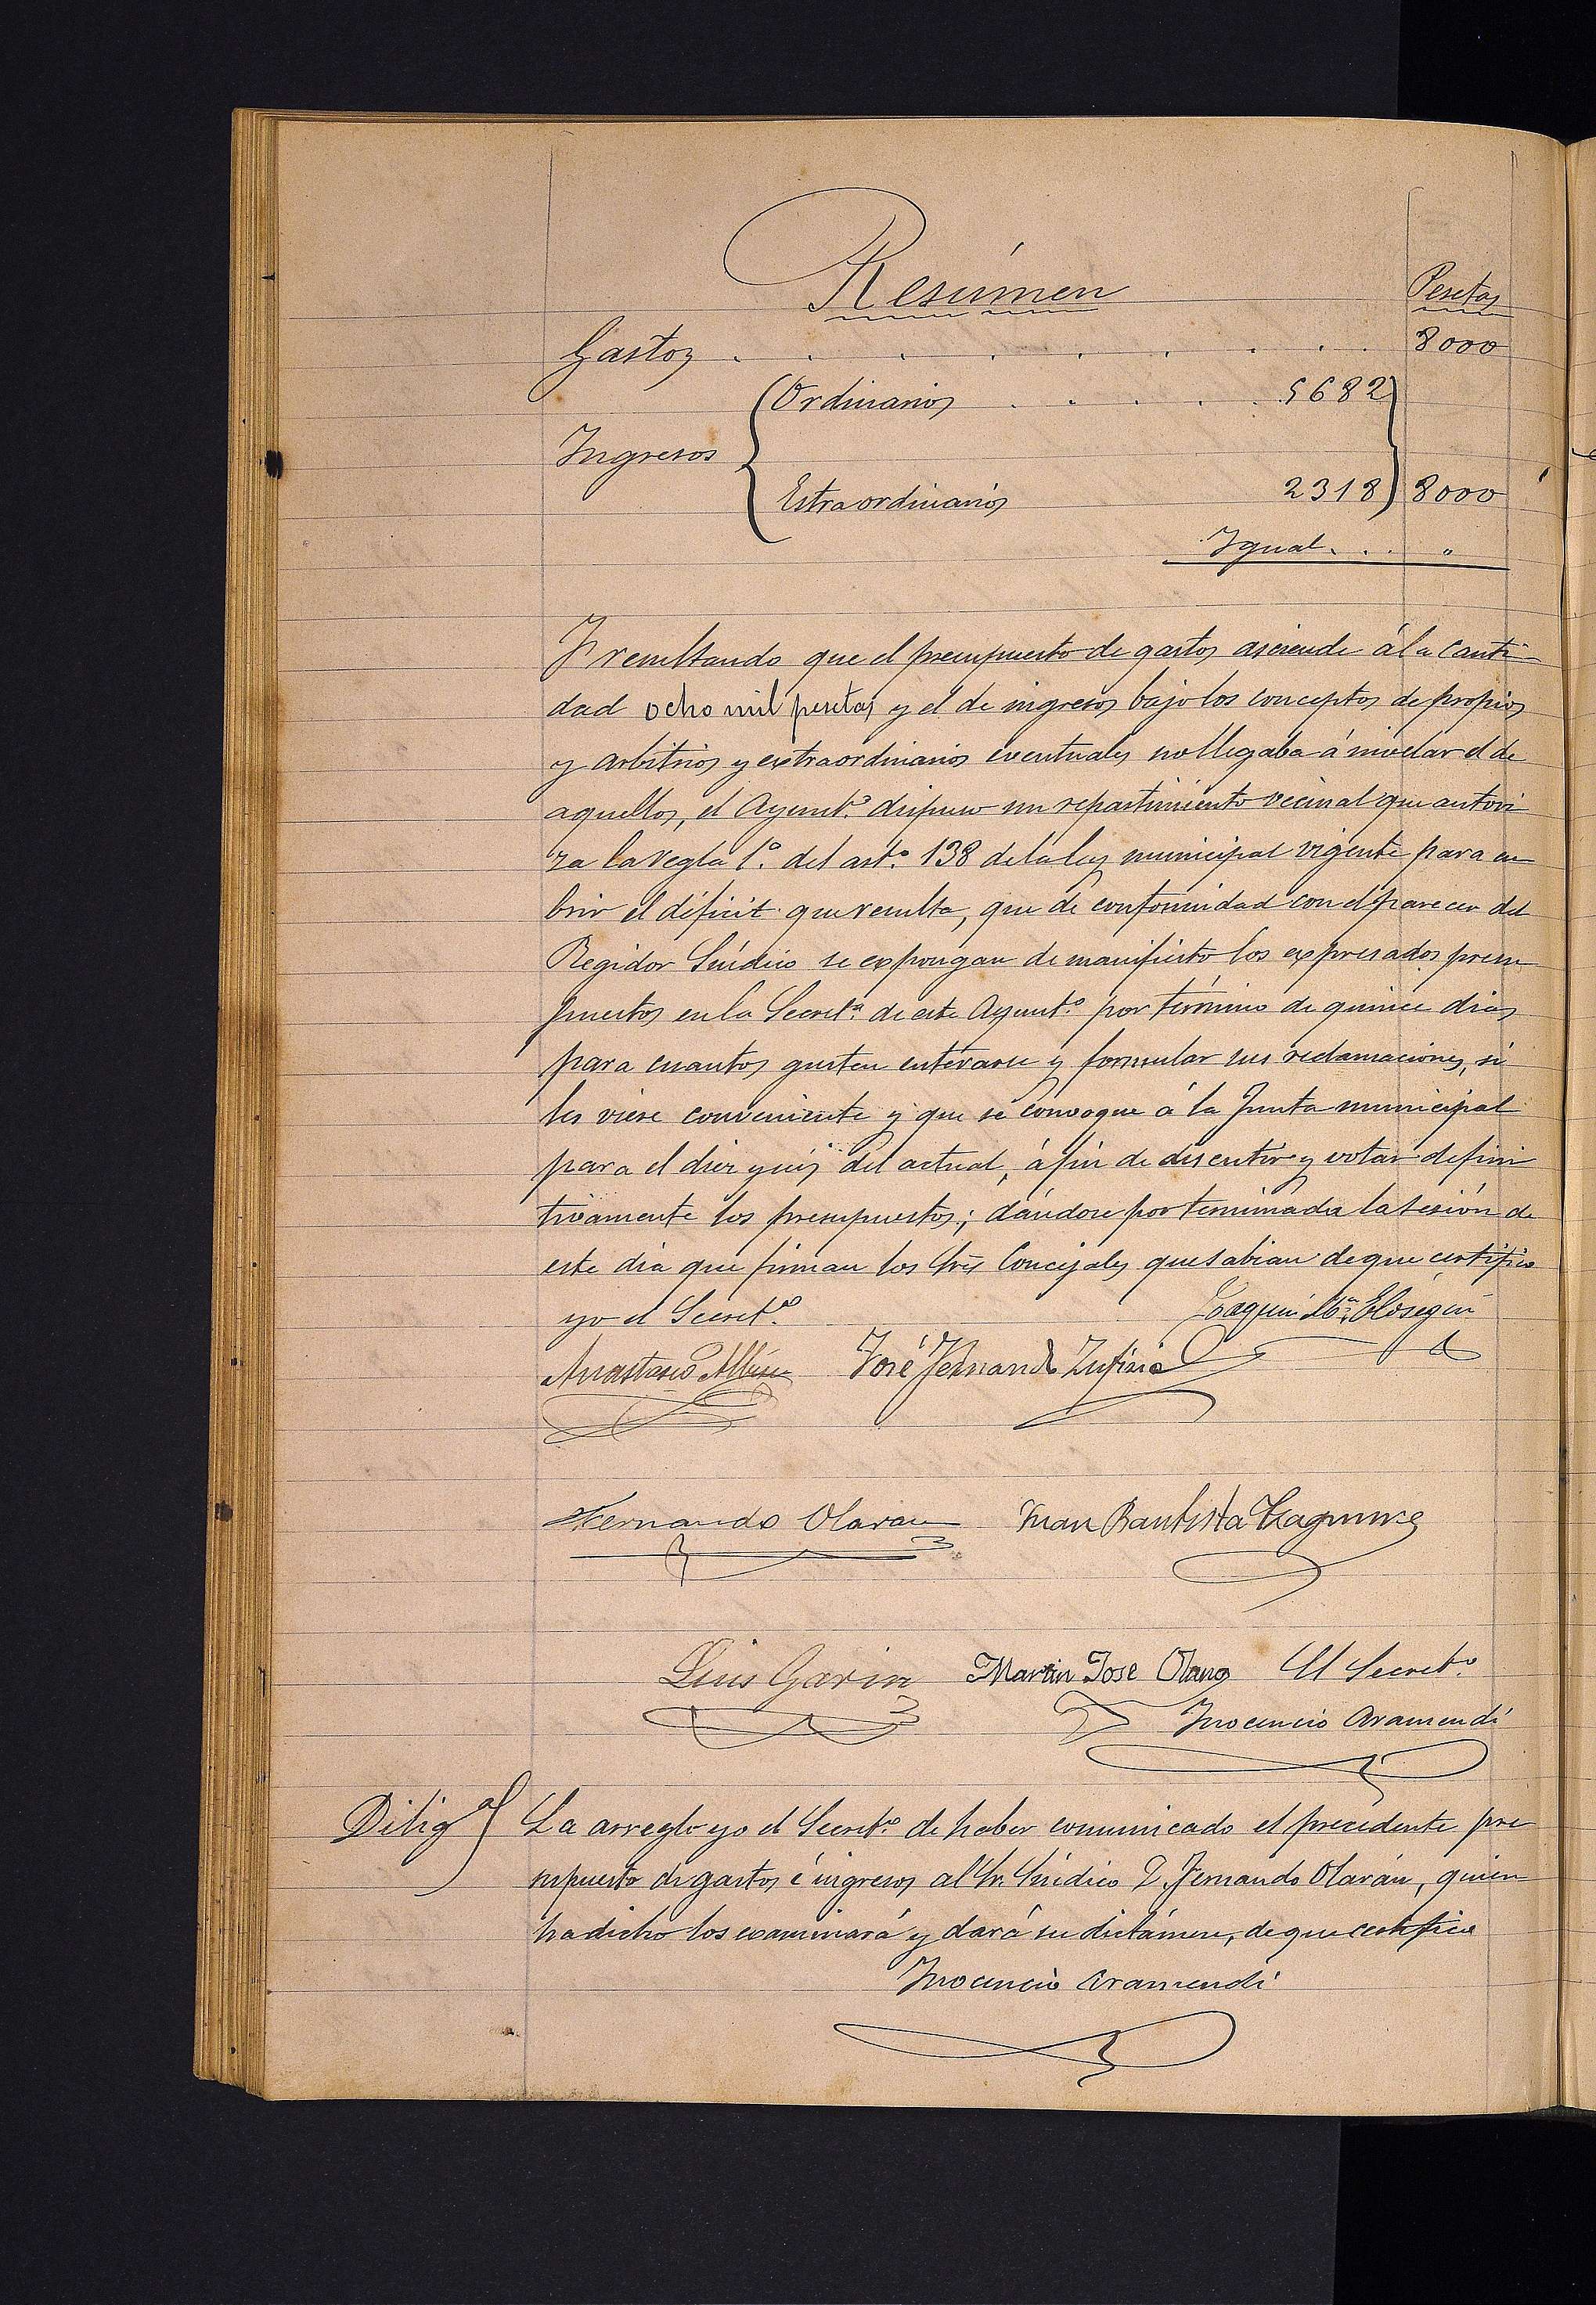 Resúmen
Pesetas
Gastos . . . . . . . . 8000
Ordinarios . . . . . 5682
Ingresos
Estraordinarios 2318 8000
Igual . . . "
Y resultando que el presupuesto de gastos asciende á la canti
dad ocho mil pesetas y el de ingresos bajo los conceptos de propios
y arbitrios y extraordinarios eventuales no llegaba á nivelar el de
aquellos, el Ayunt.º dispuso un repartimiento vecinal que autori
za la regla 1.ª del art.º 138 de la ley municipal vigente para cu
brir el déficit que resulta, que de conformidad con el parecer del
Regidor Síndico se expongan de manifiesto los expresados presu
puestos en la Secret.ª de este Ayunt.º por término de quince dias
para cuantos gusten enterarse y formular sus reclamaciones, si
les viere conveniente y que se convoque á la Junta municipal
para el diez y seis del actual, á fin de discutir y votar defini
tivamente los presupuestos; dándose por terminada la sesión de
este dia que firman los Sres Concejales que sabian de que certifico
yo el Secret.º
Joaquin M.ª Elósegui
Anastasio Albisu José Fernando Zufiria
Fernando Olaran Juan Bautista
Luis Garin Martin Jose Olano El Secret.º
Inocencio Aramendi
Dilig.ª La arreglo yo el Secret.º de haber comunicado el precedente pre
supuesto de gastos é ingresos al Sr. Síndico D. Fernando Olarán, quien
ha dicho los examinará y dará su dictámen, de que certifico
Inocencio Aramendi